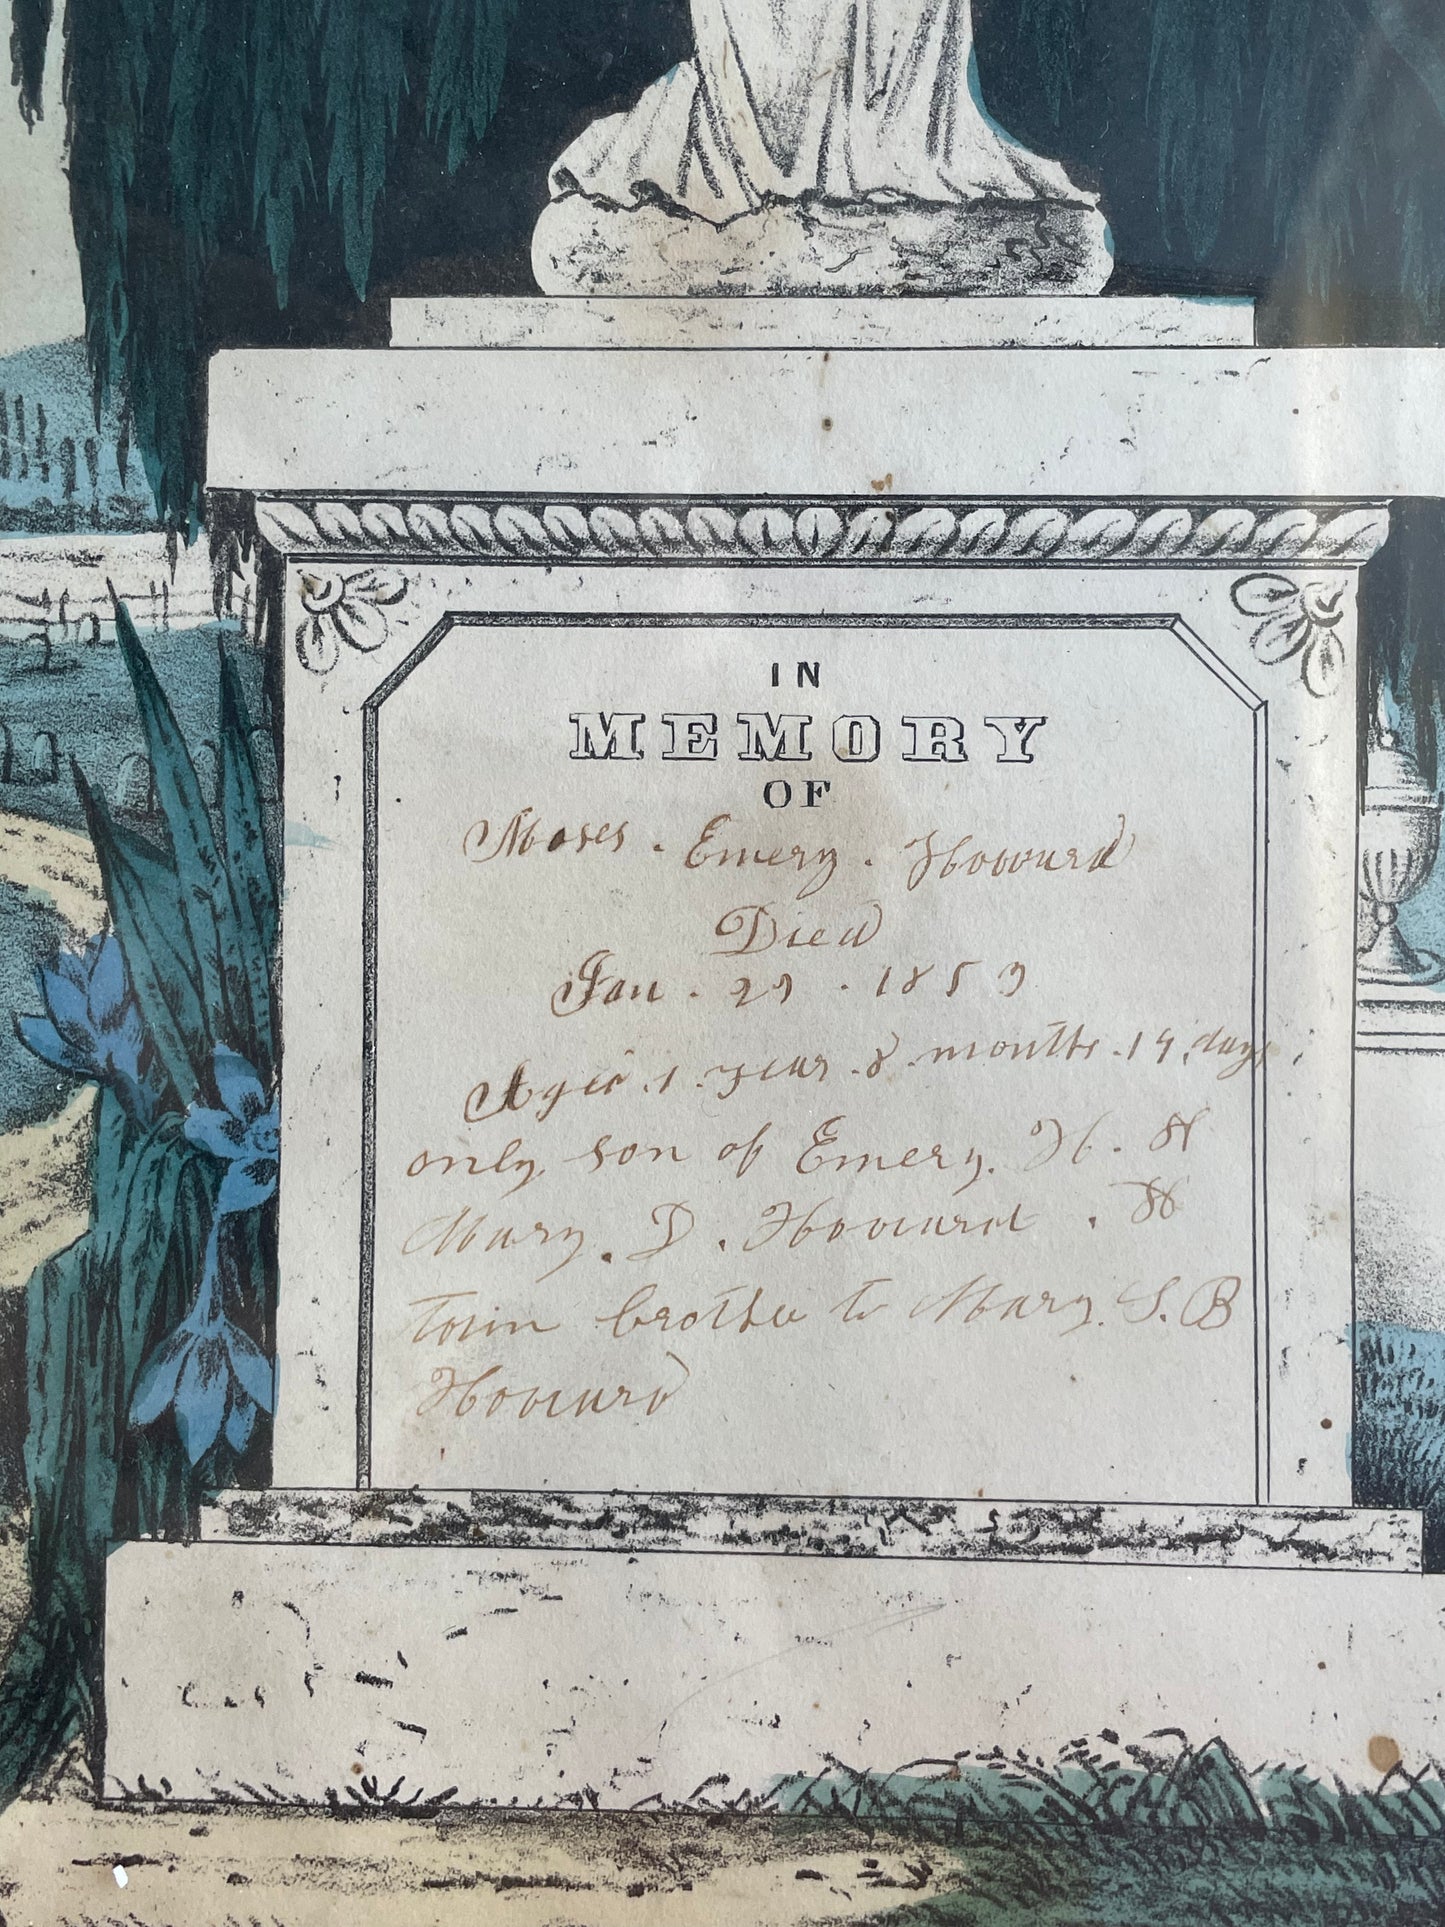 IN
MEMORY
OF
Moses . Emery . Howard
Died
Jan . 29 . 1853
Aged . 1 . year . 8 . months . 19 , days ,
only son of Emery. H. &
Mary . D . Howard . &
twin brother to Mary. S. B
Howard